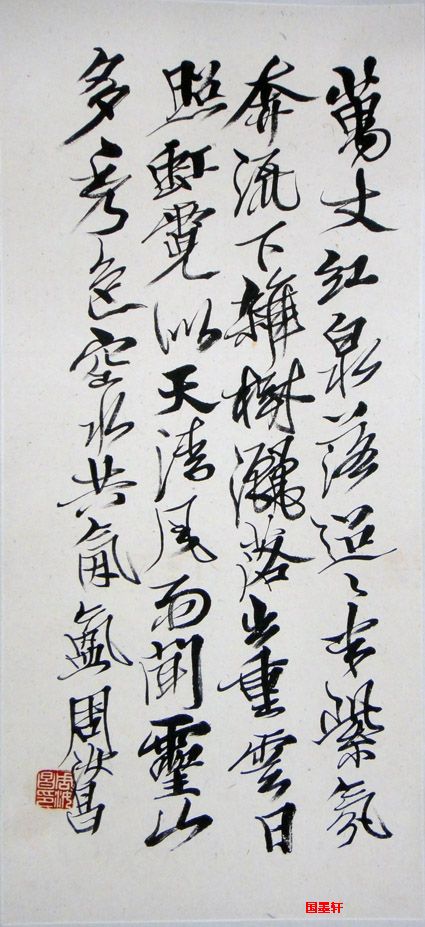 萬丈紅泉落迢〻半紫氛
奔流下雜樹灑落出重雲日
照虹霓似天清風雨聞靈山
多秀色空水共氤氳周汝昌
周汝昌印
国墨轩